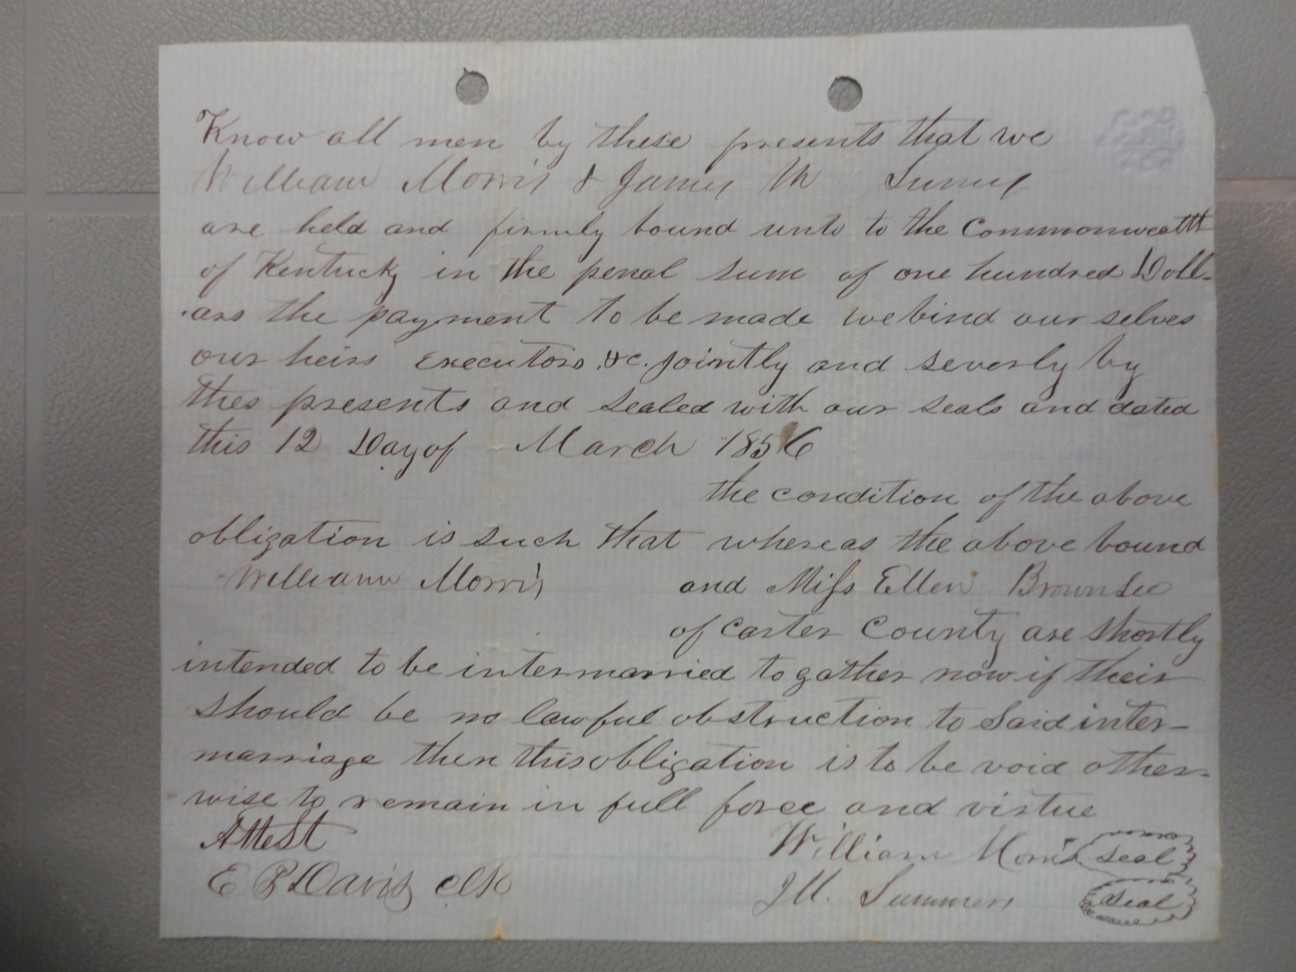 Know all men by these presents that we
William Morris & James M
are held and firmly bound unto to the Commonwealth
of Kentucky in the penal sum of one hundred Doll-
ars the payment to be made we bind our selves
our heirs Executors &c. jointly and severly by
thes presents and sealed with our seals and dated
this 12 Day of March 1856
the condition of the above
obligation is such that whereas the above bound
William Morris and Miss Ellen Brownlee
of Carter County are shortly
intended to be intermarried togather now if their
should be no lawful obstruction to Said inter-
marriage then this obligation is to be void other-
wise to remain in full force and virtue
Attest William Morris Seal
E P Davis clk J M. Summers Seal